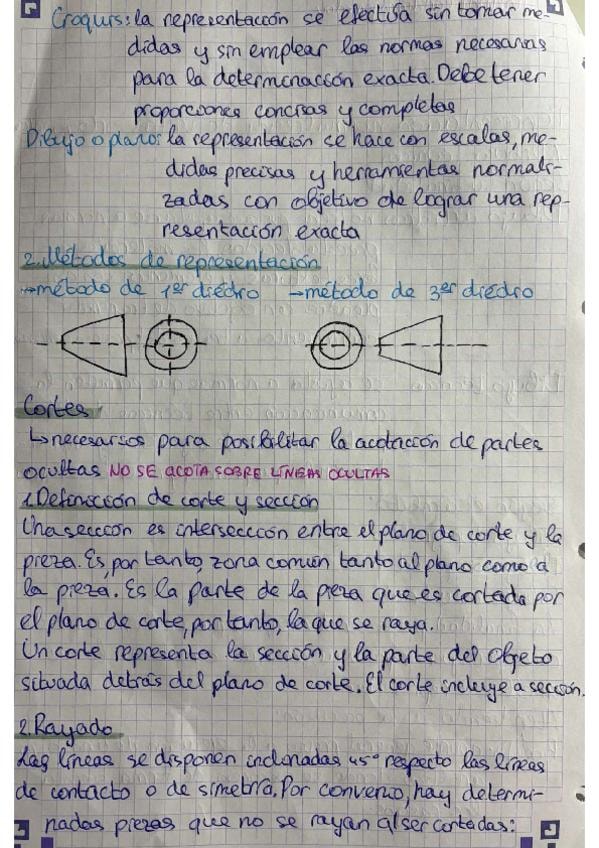 Croquis: la representación se efectúa sin tomar me-
didas y sin emplear las normas necesarias
para la determinación exacta. Debe tener
proporciones concisas y completas
Dibujo o plano: la representación se hace con escalas, me-
didas precisas y herramientas normali-
zadas con objetivo de lograr una rep-
resentación exacta
2. Métodos de representación
→método de 1er diedro →método de 3er diedro
Cortes:
↳necesarios para posibilitar la acotación de partes
ocultas NO SE ACOTA SOBRE LÍNEAS OCULTAS
1. Definición de corte y sección
Una sección es intersección entre el plano de corte y la
pieza. Es, por tanto, zona común tanto al plano como a
la pieza. Es la parte de la pieza que es cortada por
el plano de corte, por tanto, la que se raya.
Un corte representa la sección y la parte del objeto
situada detrás del plano de corte. El corte incluye a sección.
2. Rayado
Las líneas se disponen inclinadas 45° respecto las líneas
de contacto o de simetría. Por convenio, hay determi-
nadas piezas que no se rayan al ser cortadas: